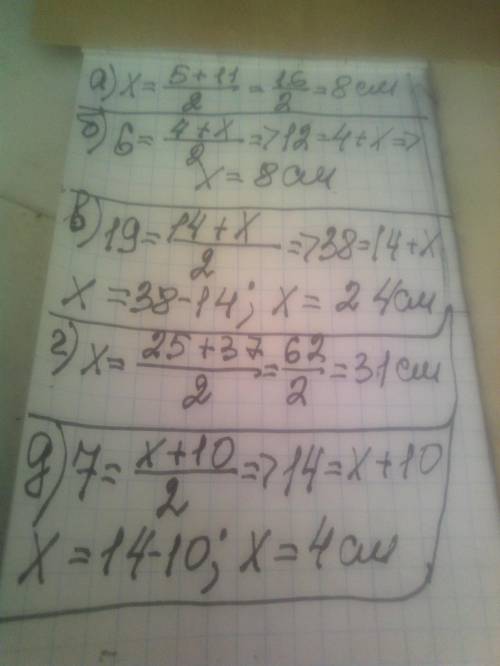 а) x = (5+11)/2 = 16/2 = 8 см
б) 6 = (4+x)/2 => 12 = 4+x =>
x = 8 см
в) 19 = (14+x)/2 => 38 = 14+x
x = 38-14; x = 24 см
г) x = (25+37)/2 = 62/2 = 31 см
д) 7 = (x+10)/2 => 14 = x+10
x = 14-10; x = 4 см